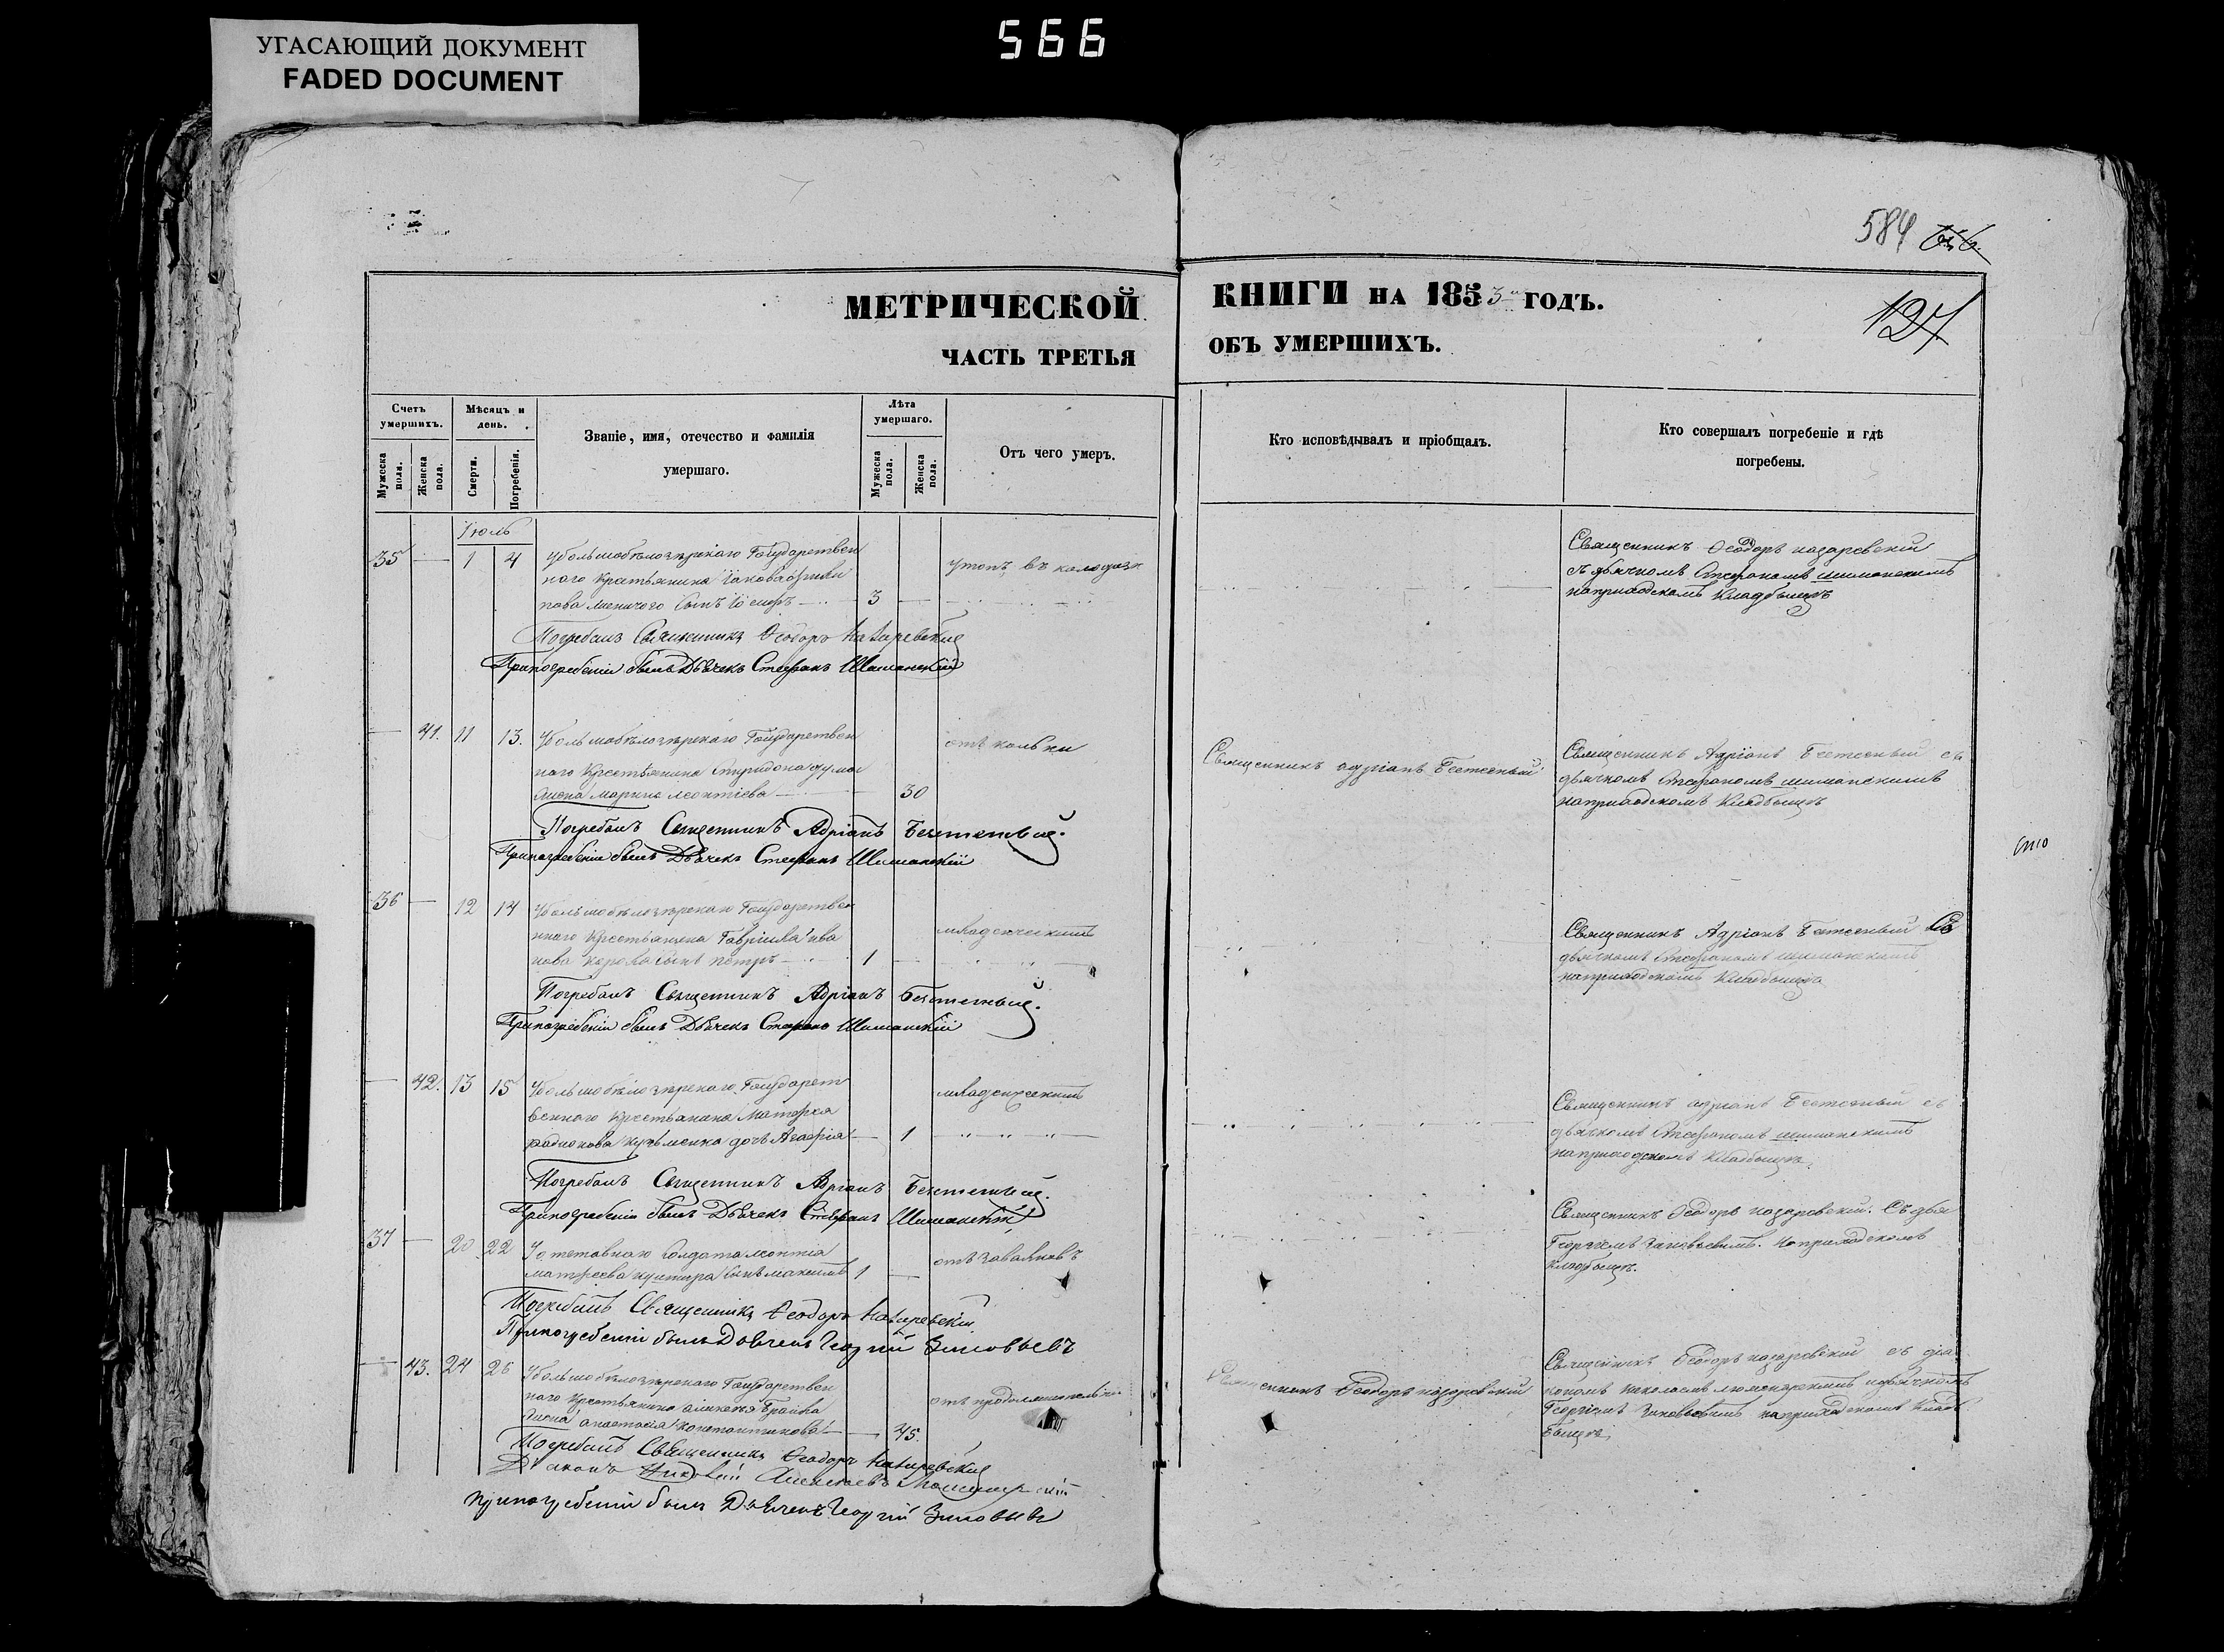 УГАСАЮЩИЙ ДОКУМЕНТ
FADED DOCUMENT
566
584
127
МЕТРИЧЕСКОЙ КНИГИ НА 1853 ГОДЪ.
ЧАСТЬ ТРЕТЬЯ ОБЪ УМЕРШИХЪ.
Счетъ умершихъ.
Мужеска пола.
Женска пола.
Мѣсяцъ и день.
Смерти.
Погребенія.
Званіе, имя, отечество и фамилія
умершаго.
Лѣта умершаго.
Мужеска пола.
Женска пола.
Отъ чего умеръ.
Кто исповѣдывалъ и пріобщалъ.
Кто совершалъ погребеніе и гдѣ
погребены.
Іюль
35 1 4 Убольшобѣлозѣрскаго Государствен
наго крестьянина Іакова
сынъ Іосифъ 3
утопъ въ колодязѣ
Священникъ Ѳеодоръ назаревскій
съ дьячкомъ Стефаномъ шиманскимъ
наприходскомъ кладбищѣ
Погребалъ Священникъ Ѳеодоръ Назаревскій
Припогребеніи былъ Дьячекъ Стефанъ Шиманскій
41. 11 13. Убольшобѣлозѣрскаго Государствен
наго Крестьянина Спиридона
жена Марина леонтіева 30
отъ кольки
Священникъ адріанъ
Священникъ Адріанъ съ
дьячкомъ Стефаномъ шиманскимъ
наприходскомъ кладбищѣ
Погребалъ Священникъ Адріанъ
Припогребеніи былъ Дьячекъ Стефанъ Шиманскій
36 12 14 Убольшобѣлозѣрскаго Государствен
наго крестьянина Гавріила ива
нова сынъ петръ 1
младенческимъ
Священникъ Адріанъ съ
дьячкомъ Стефаномъ шиманскимъ
наприходскомъ кладбищѣ
Погребалъ Священникъ Адріанъ
Припогребеніи былъ Дьячекъ Стефанъ Шиманскій
42. 13 15 Убольшобѣлозѣрскаго Государст
веннаго крестьянина Матфея
радионова кузьменка дочь Агафія 1
младенческимъ
Священникъ адріанъ съ
дьячкомъ Стефаномъ шиманскимъ
наприходскомъ кладбищѣ.
Погребалъ Священникъ Адріанъ
Припогребеніи былъ Дьячекъ Стефанъ Шиманскій
37 20 22 Уотставнаго Солдата леонтія
матфеева сынъ максимъ 1
отъ заваловъ
Священникъ Ѳеодоръ назаревскій. Съ дья
Георгіемъ Зиновьевымъ. наприходскомъ
кладбищѣ.
Погребалъ Священникъ Ѳеодоръ Назаревскій
Припогребеніи былъ Дьячекъ Георгій Зиновьевъ
43. 24 26 Убольшобѣлозѣрскаго Государствен
наго крестьянина
жена анастасія константинова 45.
Священникъ Ѳеодоръ назаревскій
Священникъ Ѳеодоръ назаревскій съ діа
кономъ николаемъ идьячкомъ
Георгіемъ Зиновьевымъ наприходскомъ клад
бищѣ
Погребалъ Священникъ Ѳеодоръ Назаревскій
Діаконъ Николай
Припогребеніи былъ Дьячекъ Георгій Зиновьевъ